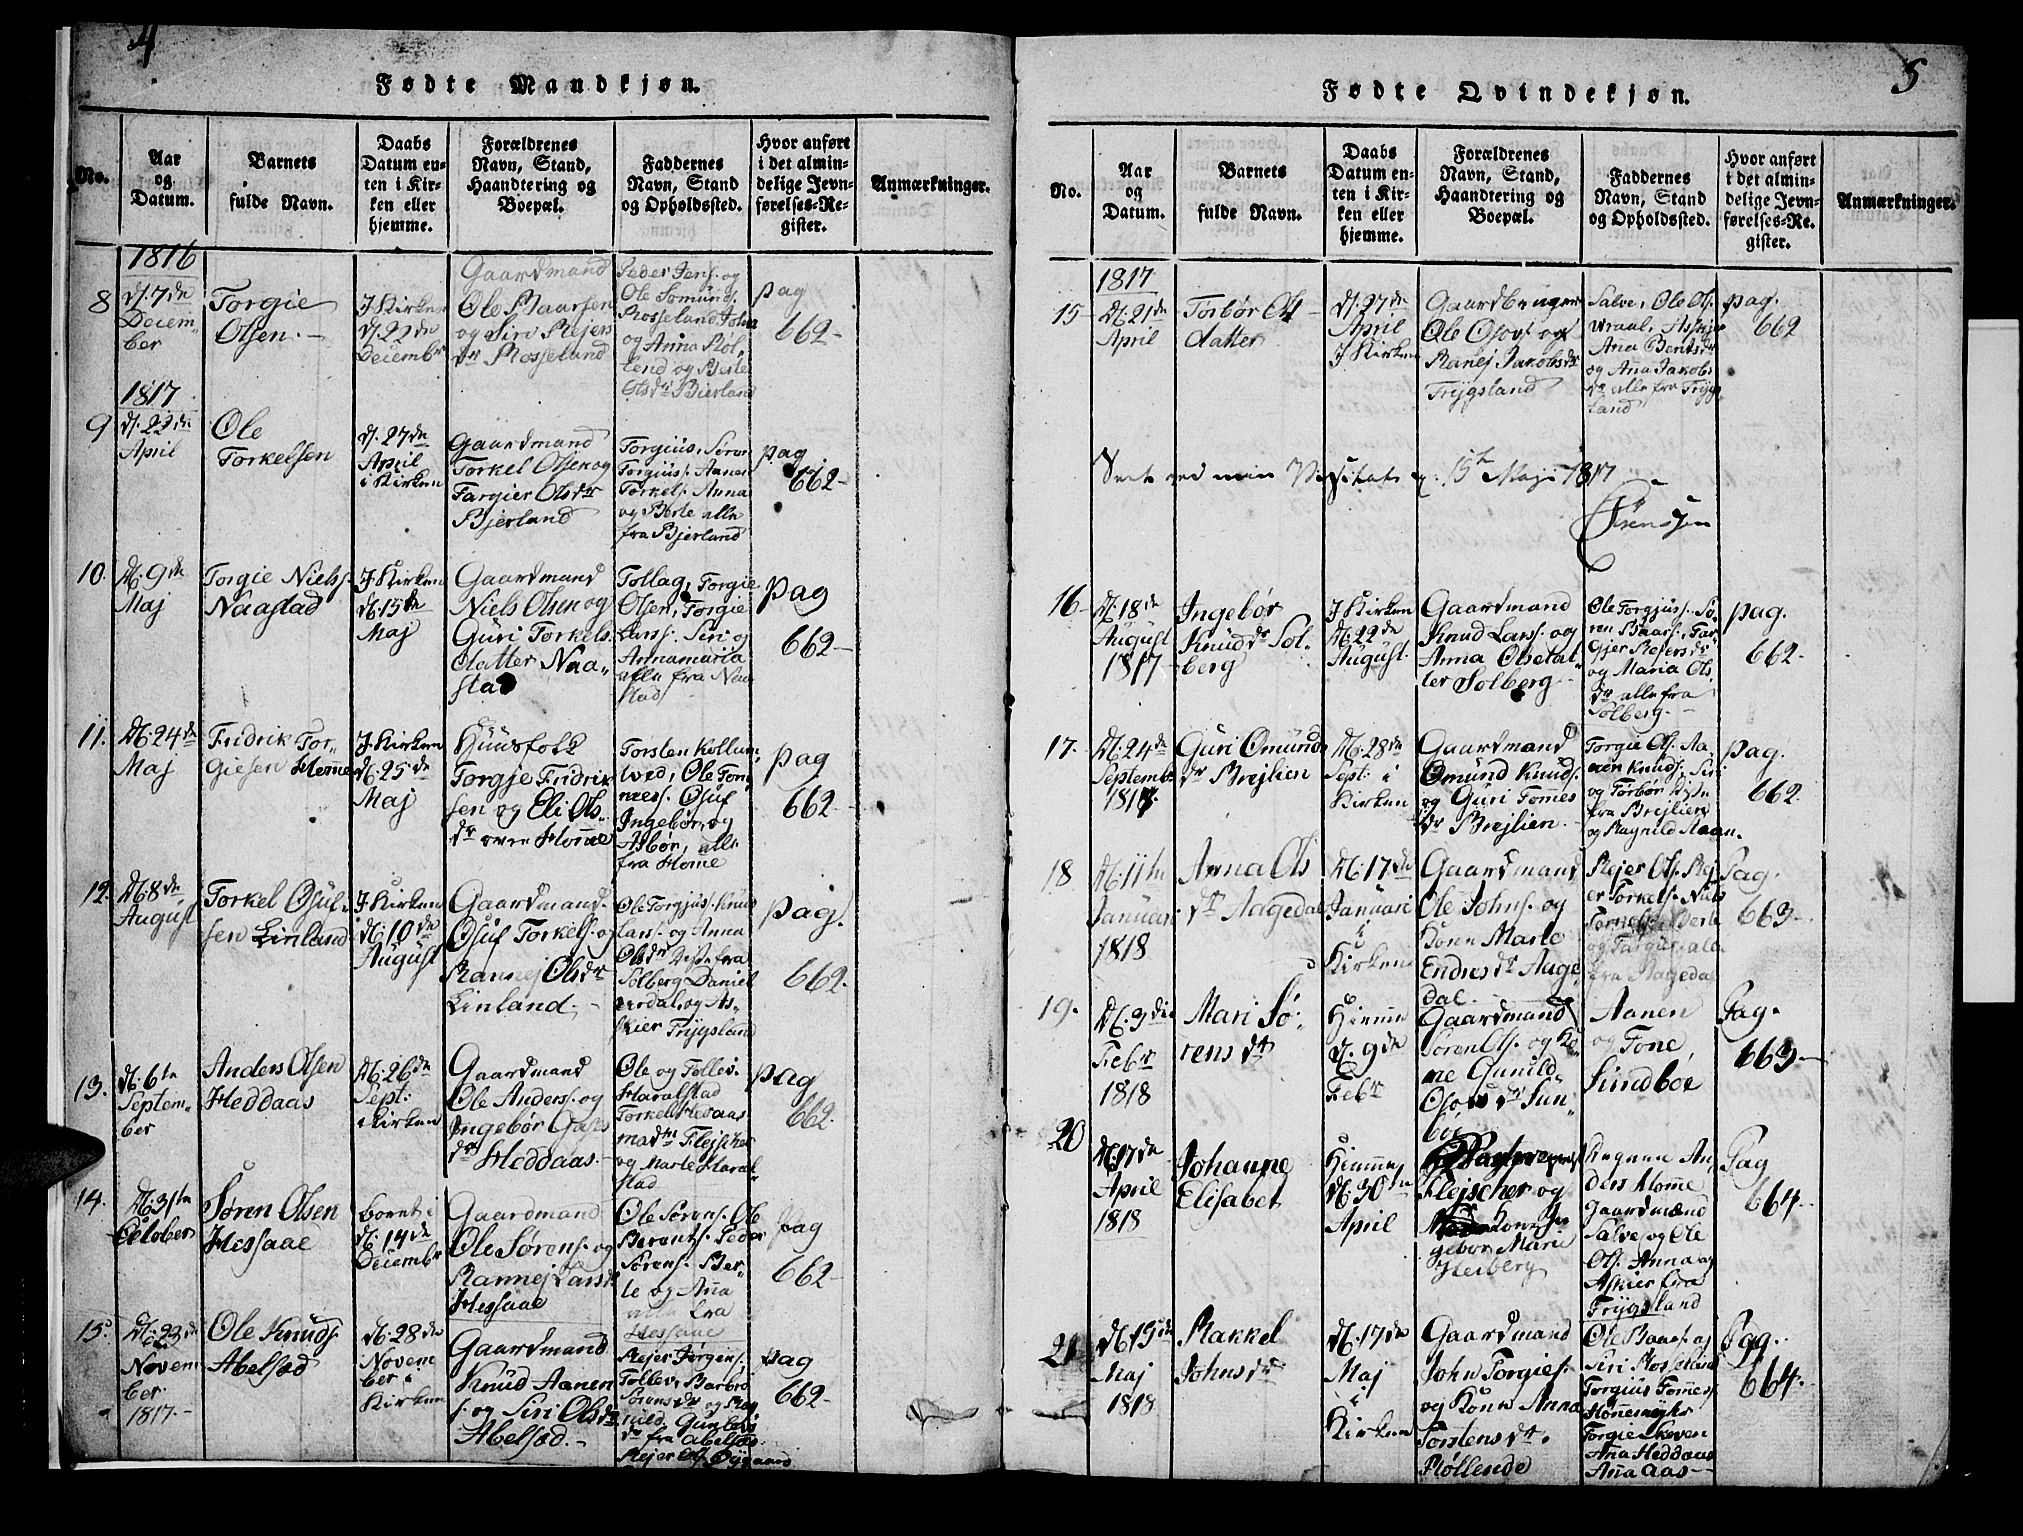 4
Fødte Mandkjøn.
No.
Aar
og
Datum.
Barnets
fulde Navn.
Daabs
Datum en-
ten i Kir-
ken eller
hjemme.
Forældrenes
Navn, Stand,
Haandtering og
Boepæl.
Faddernes
Navn, Stand
og Opholdssted.
Hvor anført
i det almin-
delige Jevn-
førelses-Re-
gister.
Anmærkninger.
1816
8
d. 7de
Decem-
ber
Torgie
Olsen.
J Kirken
d. 22de
Decembr
Gaardmand
Ole Baarsen
og Siri Rejers
dr Rosseland
Peder Jens. og
Ole Somund.
Rosseland John
og Anna Rol-
lend og Berte
Olsdr Bierland
pag
662-
1817
9
d. 22de
April
Ole
Torkelsen
d. 27de
April
i Kirken
Gaardmand
Torkel Olsen og
Targier Olsdr
Bjerland
Torgius, Sören
Torgius. Aanen
Torkels. Anna
og Berte alle
fra Bjerland
pag
662-
10.
d. 9de
Maj
Torgie Niels.
Naastad
J Kirken
d. 15de
Maj
Gaardmand
Niels Olsen og
Guri Torkels
datter Naa-
stad
Tollag, Torgie
Olsen, Torgie
Larss. Siri og
Annamaria
alle fra Naa-
stad
pag
662-
11.
d. 24de
Maj
Fridrik Tor-
giesen Home
J Kirken
d. 25de
Maj
Huusfolk
Torgje Fridrik
sen og Eli Ols-
dr oven Home
Torsten Kollum
tved, Ole Tom
næss. Osuf
Ingebör, og
Asbör, alle
fra Home
pag
662-
12.
d. 8de
August
Torkel Osuf-
sen Linland
J Kirken
d. 10de
August
Gaardmand.
Osuf Torkels. og
Rannej Olsdr
Linland.
Ole Torgjuss. Knud
Lars. og Anna
Olsdr disse fra
Solberg Daniel
og As-
kier Trygsland
pag.
662.
13.
d. 6te
Septem-
ber
Anders Olsen
Heddaas
d. 26de
Sept:
i Kirken
Gaardmand
Ole Anders. og
Ingebör
dr Heddaas.
Ole og Tollev.
Haralstad
Torkel Hedaas
madme Flejscher
og Marte Haral-
stad
pag
662.
14.
d. 31te
October
Sören Olsen
Hessaae
d. 14de
Decembr
Gaardmand
Ole Sörens. og
Rannej Lars
Hessaae
Ole Sörens. Ole
Berents. Peder
Sörens. Ber-
te og Ana
alle fra
Hessaae
pag
662-
15.
d. 23de
Novem
ber
1817.
Ole Knuds.
Abelsæd
d. 28de
Novem
ber i
Kirken
Gaardmand
Knud Aanen
s. og Siri Olsdr
Abelsæd.
Rejer Jörgens.
Tollev, Barbro
Sörensdr og Rag
nild.
dr fra Abelsæd.
Rejer Ols. Öygaard
pag
662-
5
Fødte Qvindekjøn.
No.
Aar
og
Datum.
Barnets
fulde Navn.
Daabs
Datum en-
ten i Kir-
ken eller
hjemme.
Forældrenes
Navn, Stand,
Haandtering og
Boepæl.
Faddernes
Navn, Stand
og Opholdssted.
Hvor anført
i det almin-
delige Jevn-
førelses-Re-
gister.
Anmærkninger.
1817
15
d. 21de
April
Torbør Ols
datter
d. 27de
April
J Kirken
Gaardbruger
Ole Osovs og
Ranej Jakobsdr
Trygsland
Salve, Ole Ols.
Askje
Ana Bentsdr
og Ana Jakobs
dr alle fra Tryg-
land
pag.
662
Seet ved min Visitats d: 15de Maji 1817
Sörensen
16
d. 18de
August
1817
Ingebør
Knudsdr Sol-
berg
J Kirken
d. 22de
August.
Gaardmand
Knud Larss. og
Anna Olsdat-
ter Solberg
Ole Torgjuss. Sö-
ren Baars. Tar-
gjer Rejersdr
og Maria Ols
dr alle fra
Solberg.
pag.
662.
17.
d. 24de
Septembr
1817.
Guri Omunds
dr Brejlien
d. 28de
Sept: i
Kirken
Gaardmand
Omund Knuds.
og Guri Tomes
dr Brejlien
Torgie Ols. Aa-
nen Knuds, Siri
og Torbör disse
fra Brejlien
og Ragnild Aaan.
pag.
662.
18
d. 11te
Januari
1818
Anna Ols
dr Aagedal
d. 17de
Januari
i
Kirken
Gaardmand
Ole Johns. og
Kone Marte
Endresdr Aage
dal.
Rejer Ols. Rej
er Torkels. Niels
Berte
og Targier alle
fra Aagedal
Pag.
663-
19.
d. 3die
Febr
1818
Mari Sö-
rensdr
Hiemme
d. 9de
Febr
Gaardmand
Sören Ols. og Ko-
ne Gunild
Osovs dr Sun-
böe
Aanen
og Tone
Sundböe
Pag.
663-
20
d. 17de
April
1818
Johanne
Elisabet
Hiemme
d. 30te
April
Flejscher og
Kone In
gebor Marie
Heiberg
Anders Home
Gaardmænd
Salve og Ole
Ols. Anna og
Askier fra
Trygsland
Pag
664-
21
d. 15de
Maj
1818
Rakkel
Johnsdr
d. 17de
Maj
i
Kirken
Gaardmand
John Torgies.
og Kone Anna
Torstensdr.
Möllende
Ole Baars. og
Siri Rosseland
Torgius Tomess.
Homemyhr
Torgie Skoven
Ana Heddaas
Ana Aas
Pag.
664.